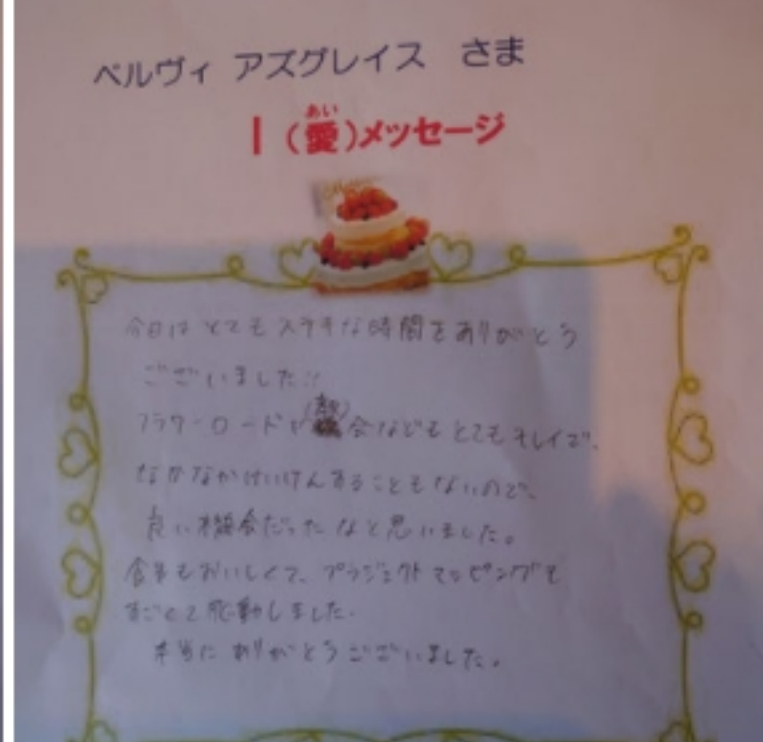 ベルヴィ アズグレイス さま
あい
I(愛)メッセージ
今日はとてもステキな時間をありがとう
ございました!!
フラワーロードや(教)会などもとてもキレイで、
なかなかけいけんすることもないので、
良い機会だったなと思いました。
食事もおいしくて、プラジェクトマッピングも
すごくて感動しました。
本当にありがとうございました。